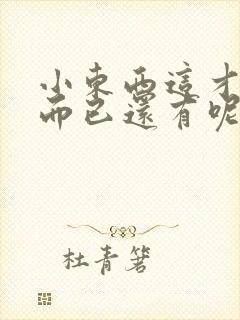 小東西這才
而已還有呢
杜青箬